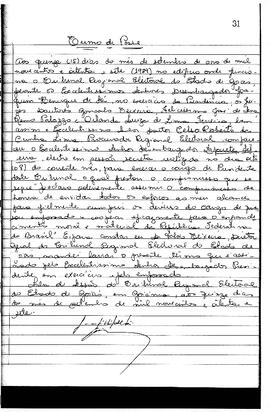 31
Termo de Posse
Aos quinze (15) dias do mês de setembro do ano de mil
novecentos e oitenta e sete (1987) no edifício onde funcio-
na o Tribunal Regional Eleitoral do Estado de Goiás,
perante os Excelentíssimos Senhores Desembargador Joa-
quim Henrique de Sá, no exercício da Presidência, os Juí-
zes Doutores Gonçalo Teixeira
Palazzo e Orlando Luiz de Lima Ferreira, bem
assim o Excelentíssimo Senhor Doutor Celso Roberto da
Cunha Lima, Procurador Regional Eleitoral, compare-
ceu o Excelentíssimo Senhor Desembargador
eleito em sessão secreta realizada no dia oito
(08) do corrente mês, para exercer o cargo de Presidente
deste Tribunal, o qual prestou o compromisso que se
segue: declaro solenemente assumir o compromisso de
honra de envidar todos os esforços ao meu alcance
para fielmente cumprir os deveres do cargo de que
sou empossado e cooperar eficazmente para o engrande-
cimento moral e material da República Federativa
do Brasil. E para constar eu
Geral do Tribunal Regional Eleitoral do Estado de
Goiás mandei lavrar o presente termo que é assi-
nado pelo Excelentíssimo Senhor Desembargador Presi-
dente, em exercício e pelo empossado.
Sala de Sessões do Tribunal Regional Eleitoral
do Estado de Goiás, em Goiânia, aos quinze dias
do mês de setembro de mil novecentos e oitenta e
sete.